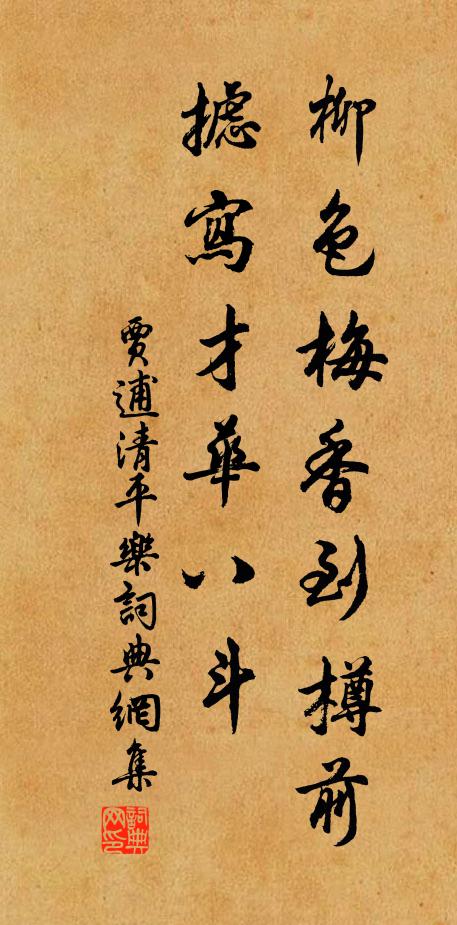 柳色梅香到樽前
攄寫才華八斗
賈逋清平樂詞典網集
詞典网印